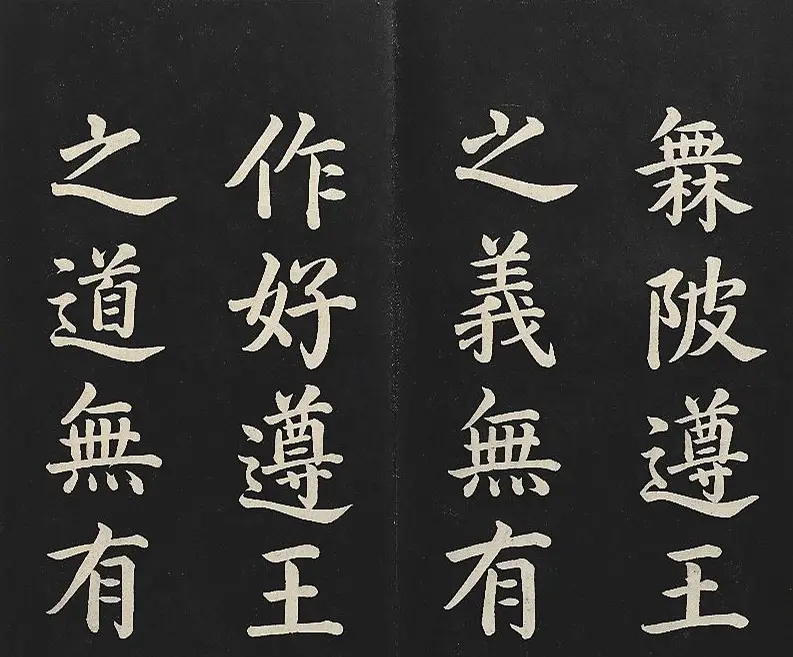 橆陂遵王
之義無有
作好遵王
之道無有